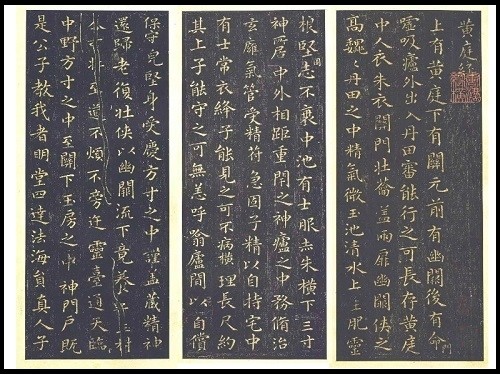 黄庭經
上有黄庭下有關元前有幽闕後有命門
噓吸廬外出入丹田審能行之可長存黄庭
中人衣朱衣關門壯蘥蓋兩扉幽闕俠之
高巍〻丹田之中精氣微玉池清水上生肥靈
根堅志不衰中池有士服赤朱橫下三寸
神所居中外相距重閉之神廬之中務脩治
玄廱氣管受精符急固子精以自持宅中
有士常衣絳子能見之可不病橫理長尺約
其上子能守之可無恙呼翕廬間以自償
保守完堅身受慶方寸之中謹蓋藏精神
還歸老復壯俠以幽闕流下竟養
至道不煩不旁迕靈臺通天臨
中野方寸之中至關下玉房之中神門戶既
是公子教我者明堂四達法海員真人子